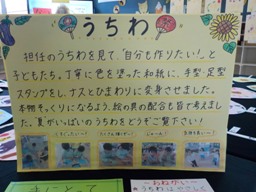 うちわ
担任のうちわを見て、「自分も作りたい！」と
子どもたち。丁寧に色を塗った和紙に、手型・足型
スタンプをし、ナスとひまわりに変身させました。
本物そっくりになるよう、絵の具の配合も皆で考えました。
夏がいっぱいのうちわをどうぞご覧下さい！